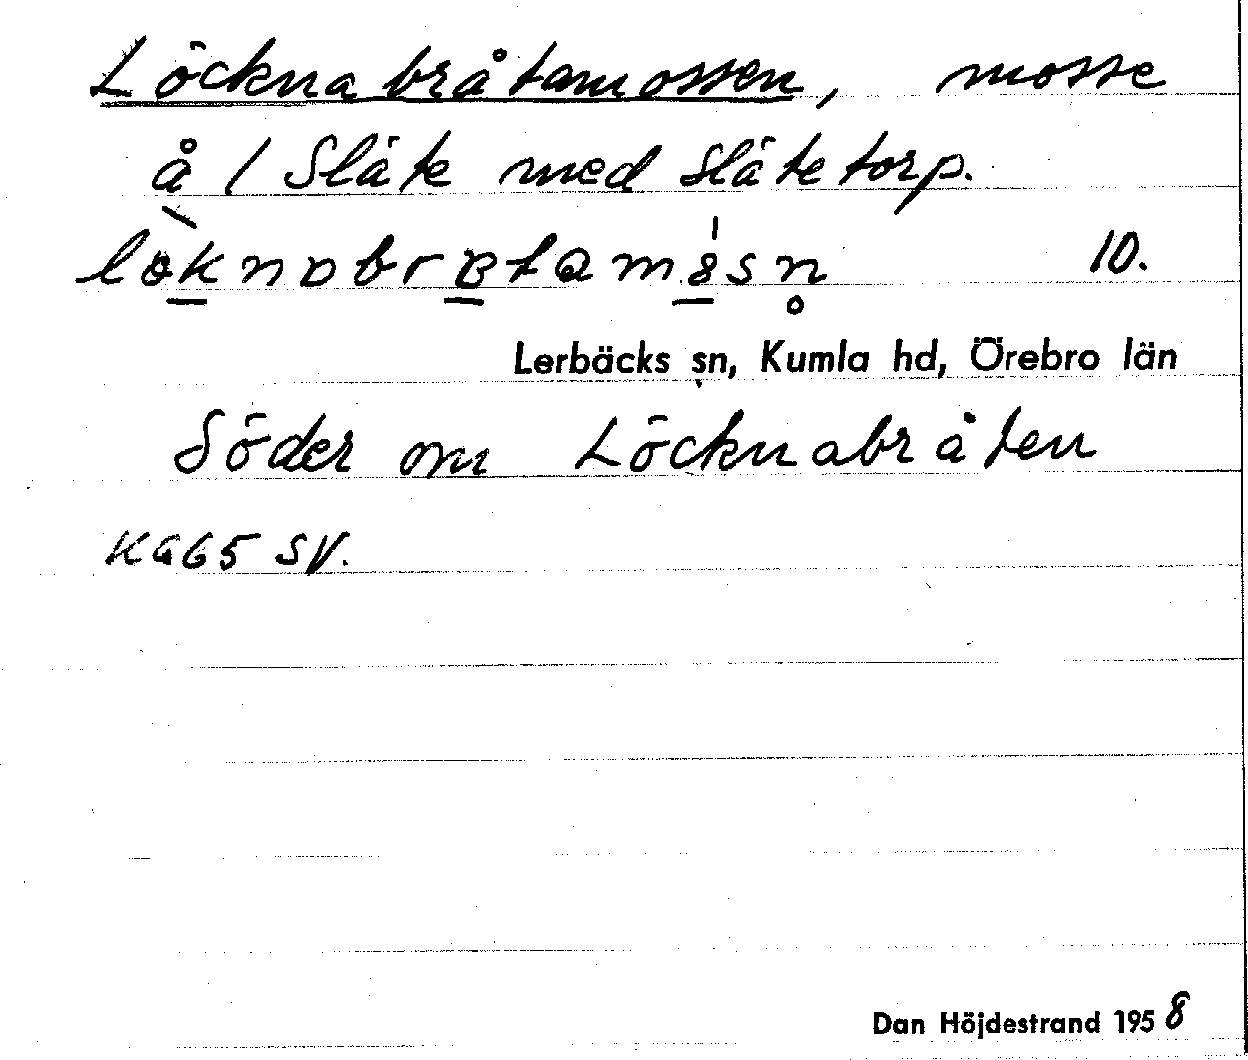 Löcknabråtamossen, mosse
å / Släte med Slätetorp.
10.
Lerbäcks sn, Kumla hd, Örebro län
Söder om Löcknabråten
KG65 SV.
Dan Höjdestrand 1958